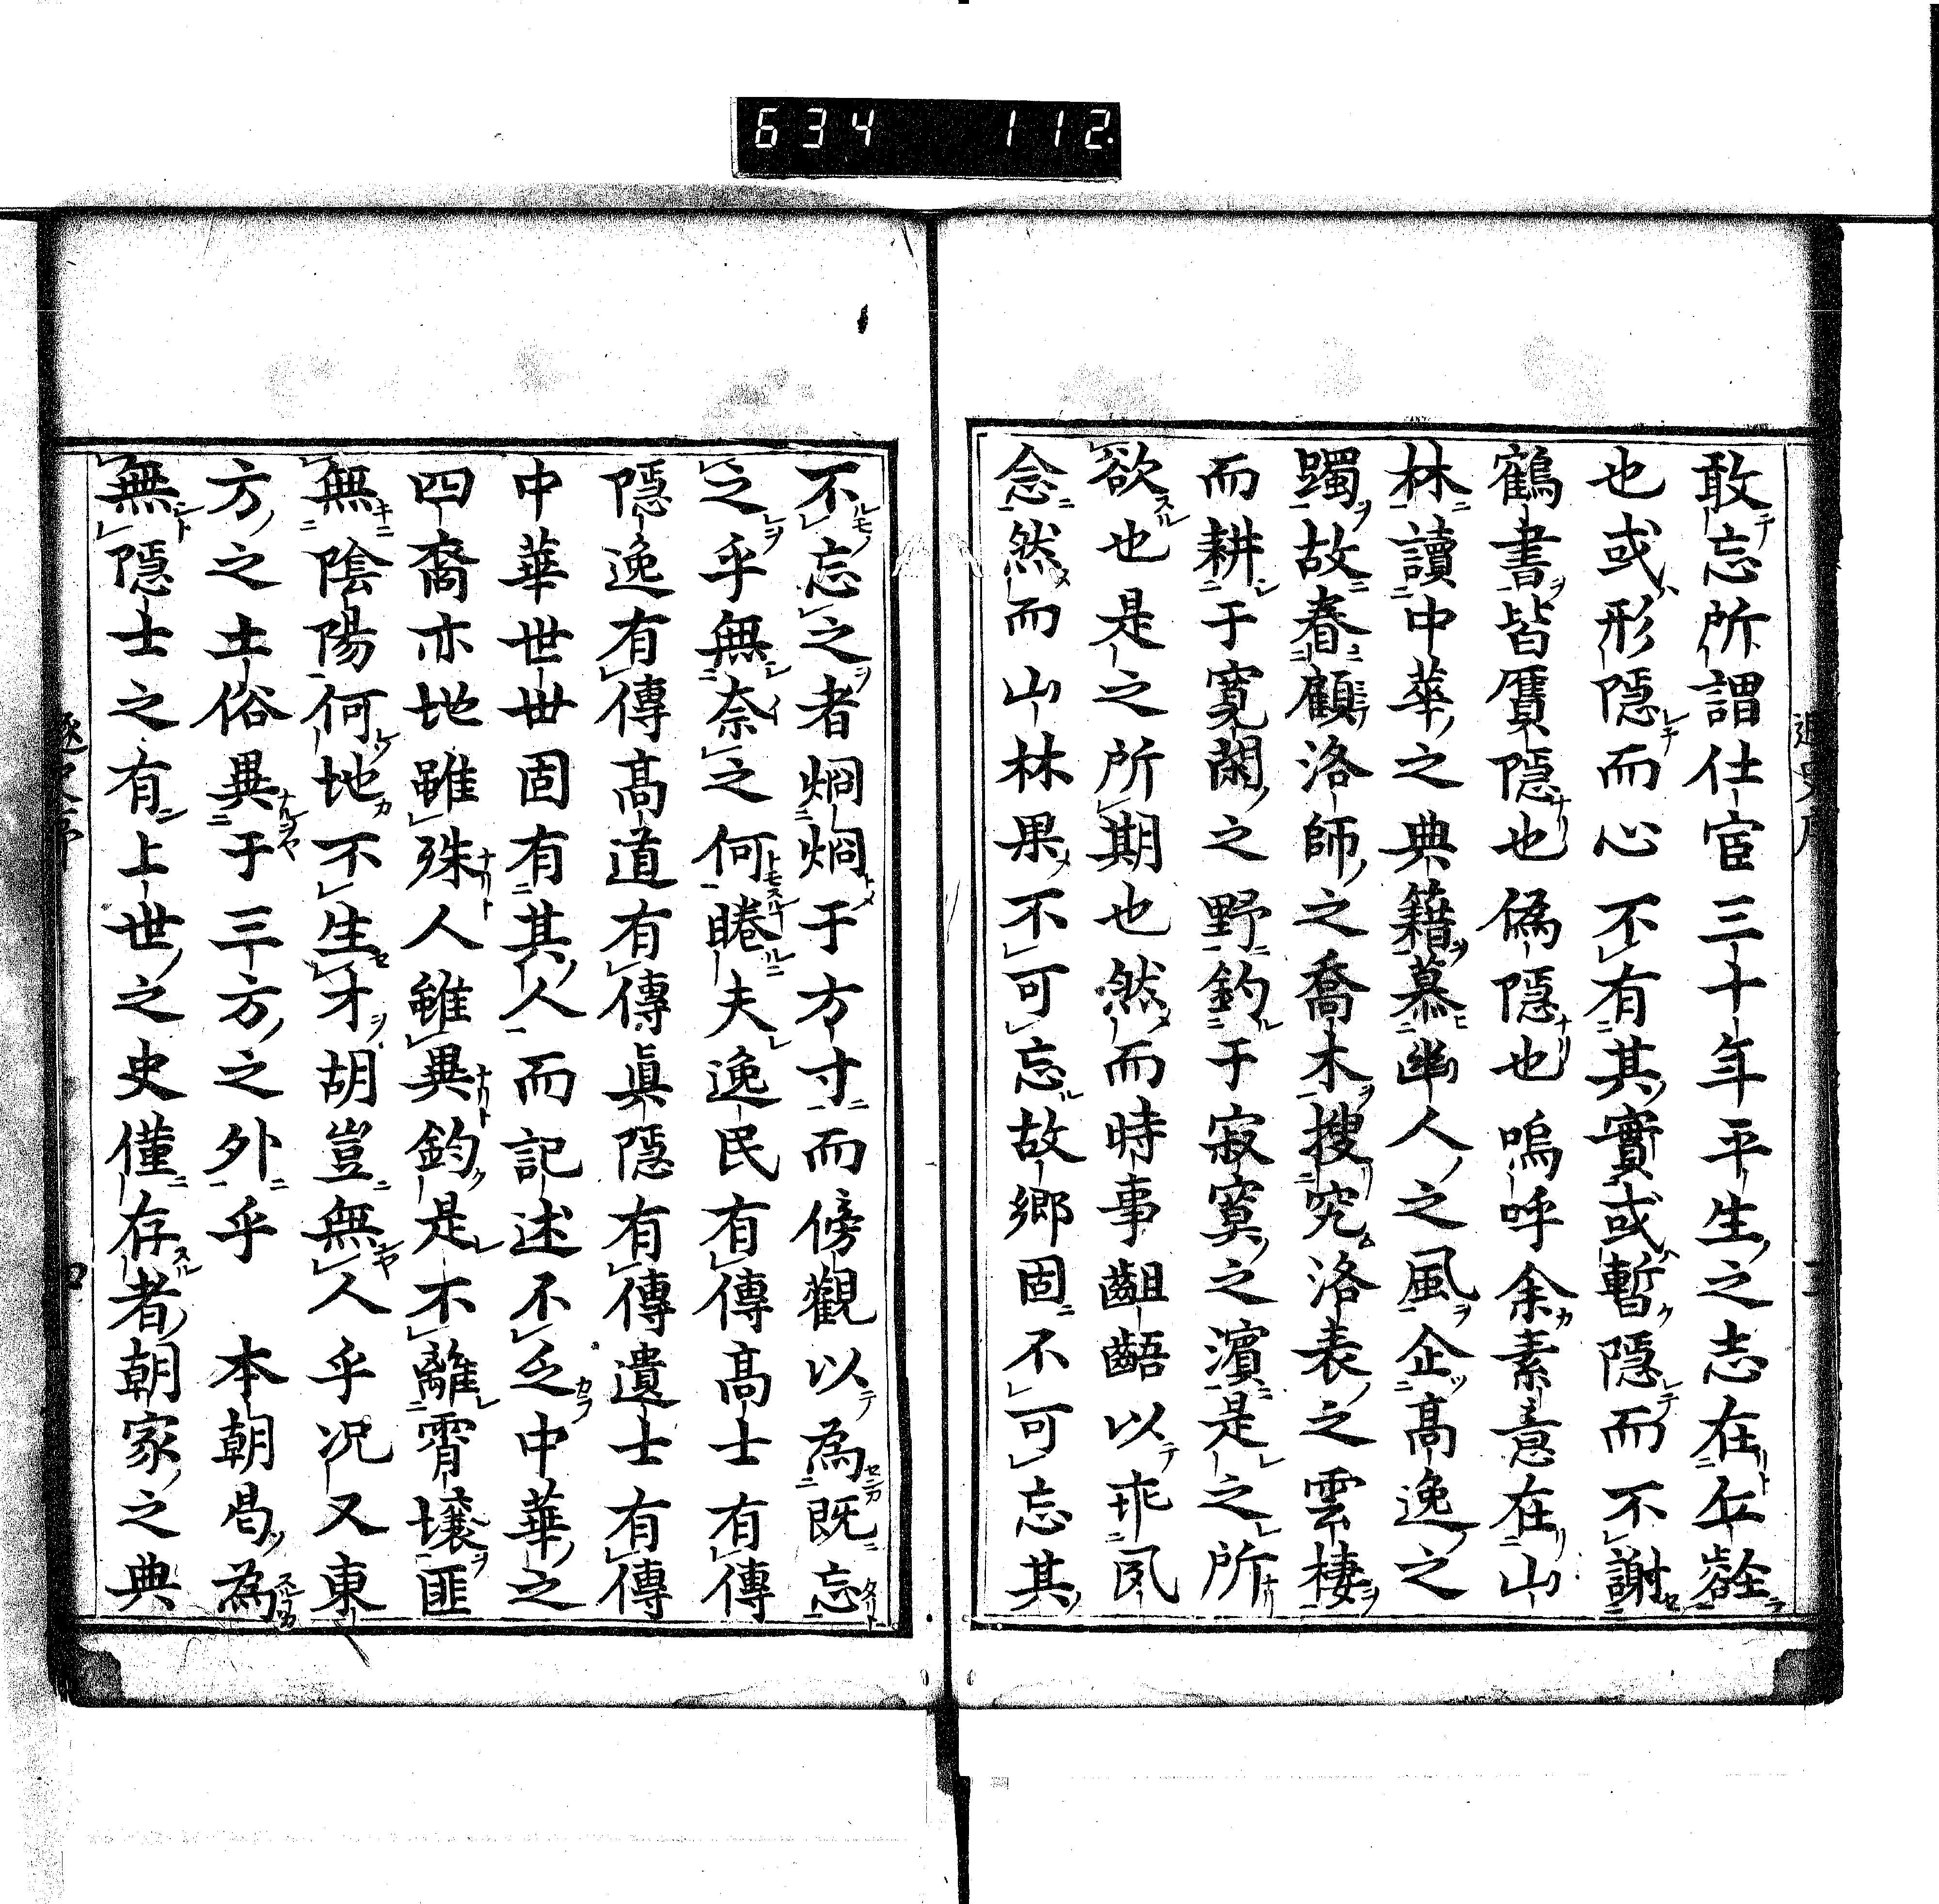 634 112.
敢忘所謂仕宦三十年平生之志在丘壑
也或形隱而心不有其實或暫隱而不謝
鶴書皆贋隱也偽隱也嗚呼余素意在山
林讀中華之典籍慕幽人之風企高逸之
躅故眷顧洛師之喬木搜究洛表之雲棲
而耕于寬閑之野釣于寂寞之濱是之所
欲也是之所期也然而時事齟齬以乖夙
念然而山林果不可忘故郷固不可忘其
不忘之者烱烱于方寸而傍觀以為既忘
之乎無奈之何睠夫逸民有傳高士有傳
隱逸有傳高道有傳眞隱有傳遺士有傳
中華世世固有其人而記述不乏中華之
四裔亦地雖殊人雖異鈞是不離霄壤匪
無陰陽何地不生才胡豈無人乎况又東
方之土俗異于三方之外乎 本朝曷為
無隱士之有上世之史僅存者朝家之典